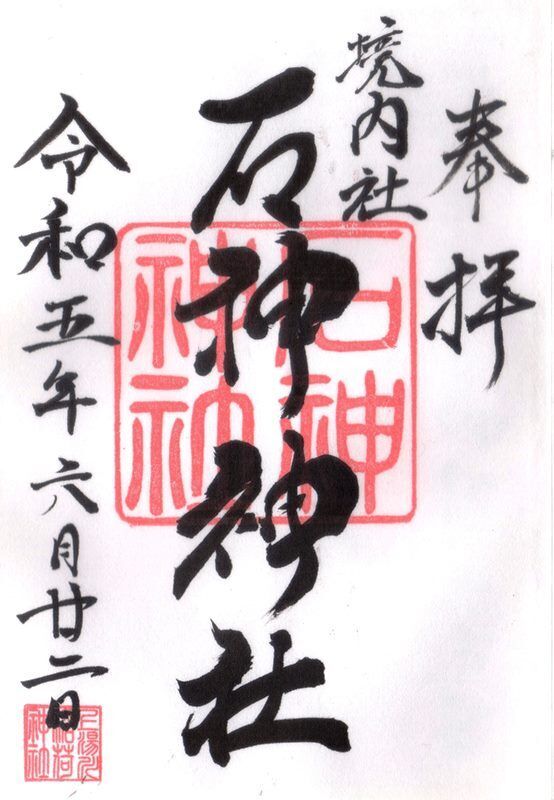 奉拝
境内社
石神神社
令和五年六月廿二日
石神
神社
稲荷
神社